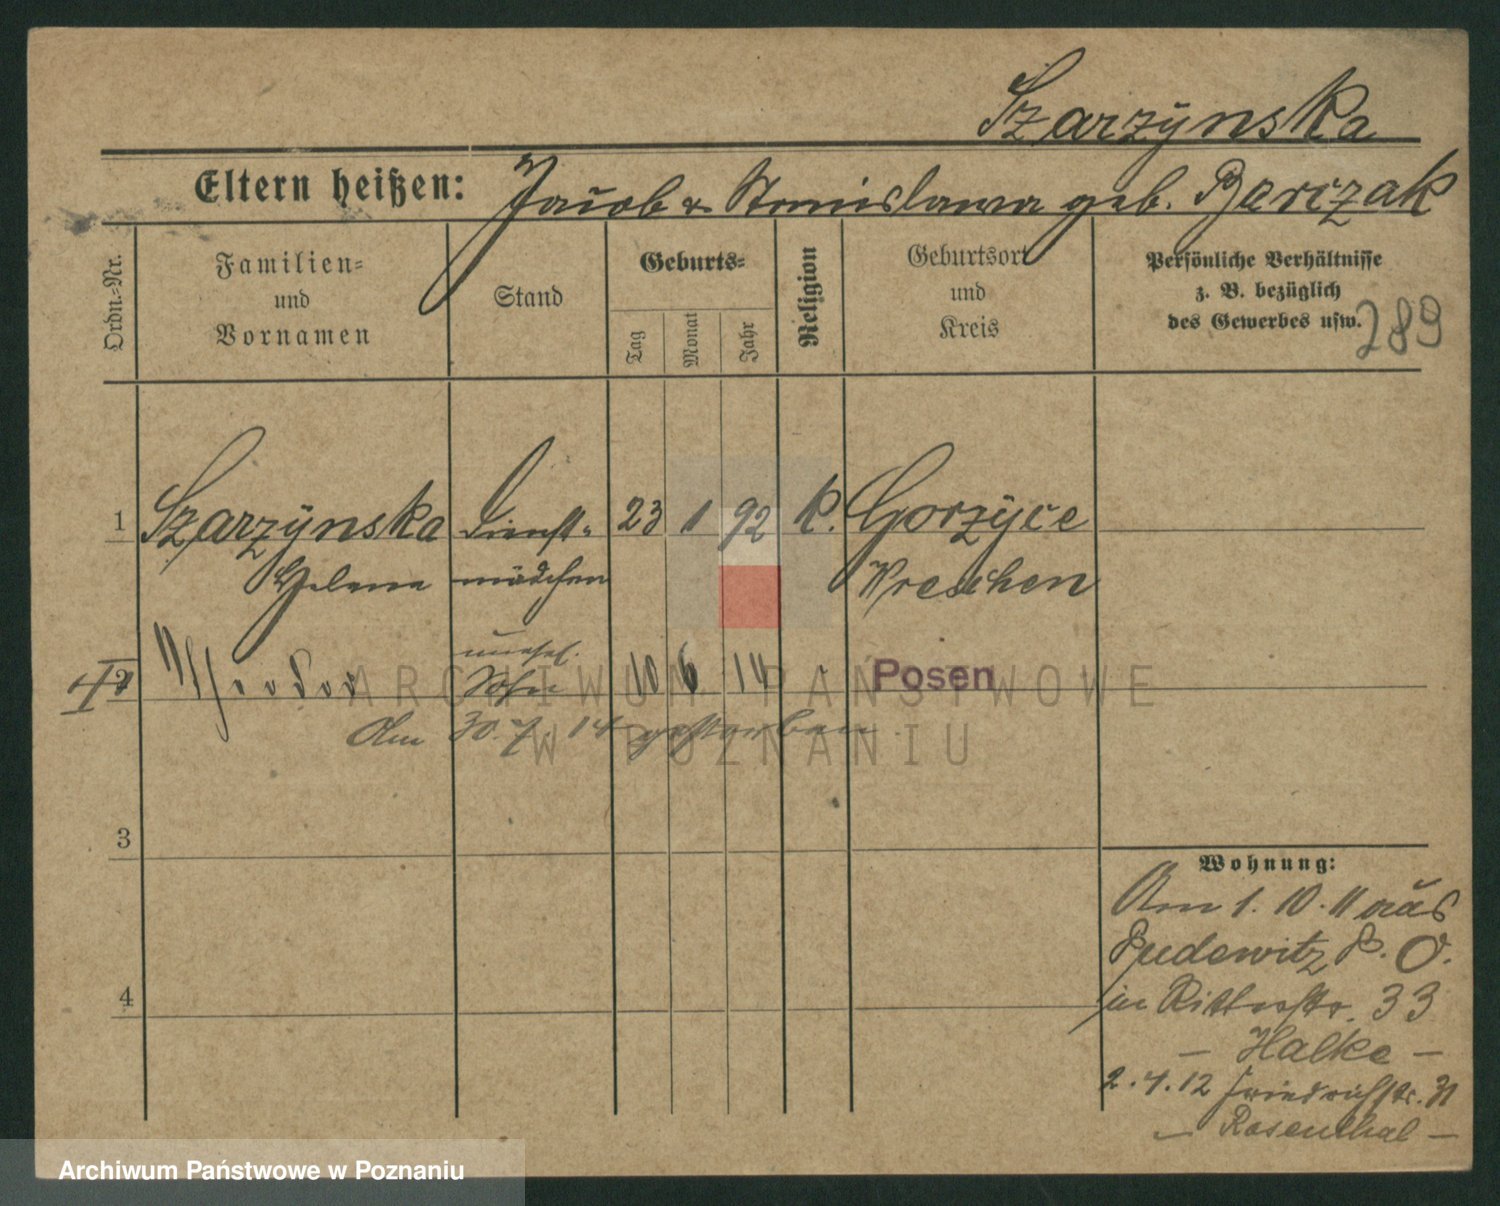 Szarzynska
Eltern heißen: Jakob u Stanislawa geb. Barczak
Ordn.-Nr.
Familien-
und
Vornamen
Stand
Geburts-
Tag
Monat
Jahr
Religion
Geburtsort
und
Kreis
Persönliche Verhältnisse
z. B. bezüglich
des Gewerbes usw.
289
1 Szarzynska Dienst- 23 1 92 k. Gorzyce
Helena mädchen Wreschen
unehel.
2 Theodor Sohn 10 6 14 Posen
Am 30. 7. 14 gestorben
3
4
Wohnung:
Am 1. 10. 11 aus
Pudewitz P. O.
in Ritterstr. 33
– Halke –
2.4.12 Friedrichstr. 31
– Rosenthal –
ARCHIWUM PAŃSTWOWE
W POZNANIU
Archiwum Państwowe w Poznaniu